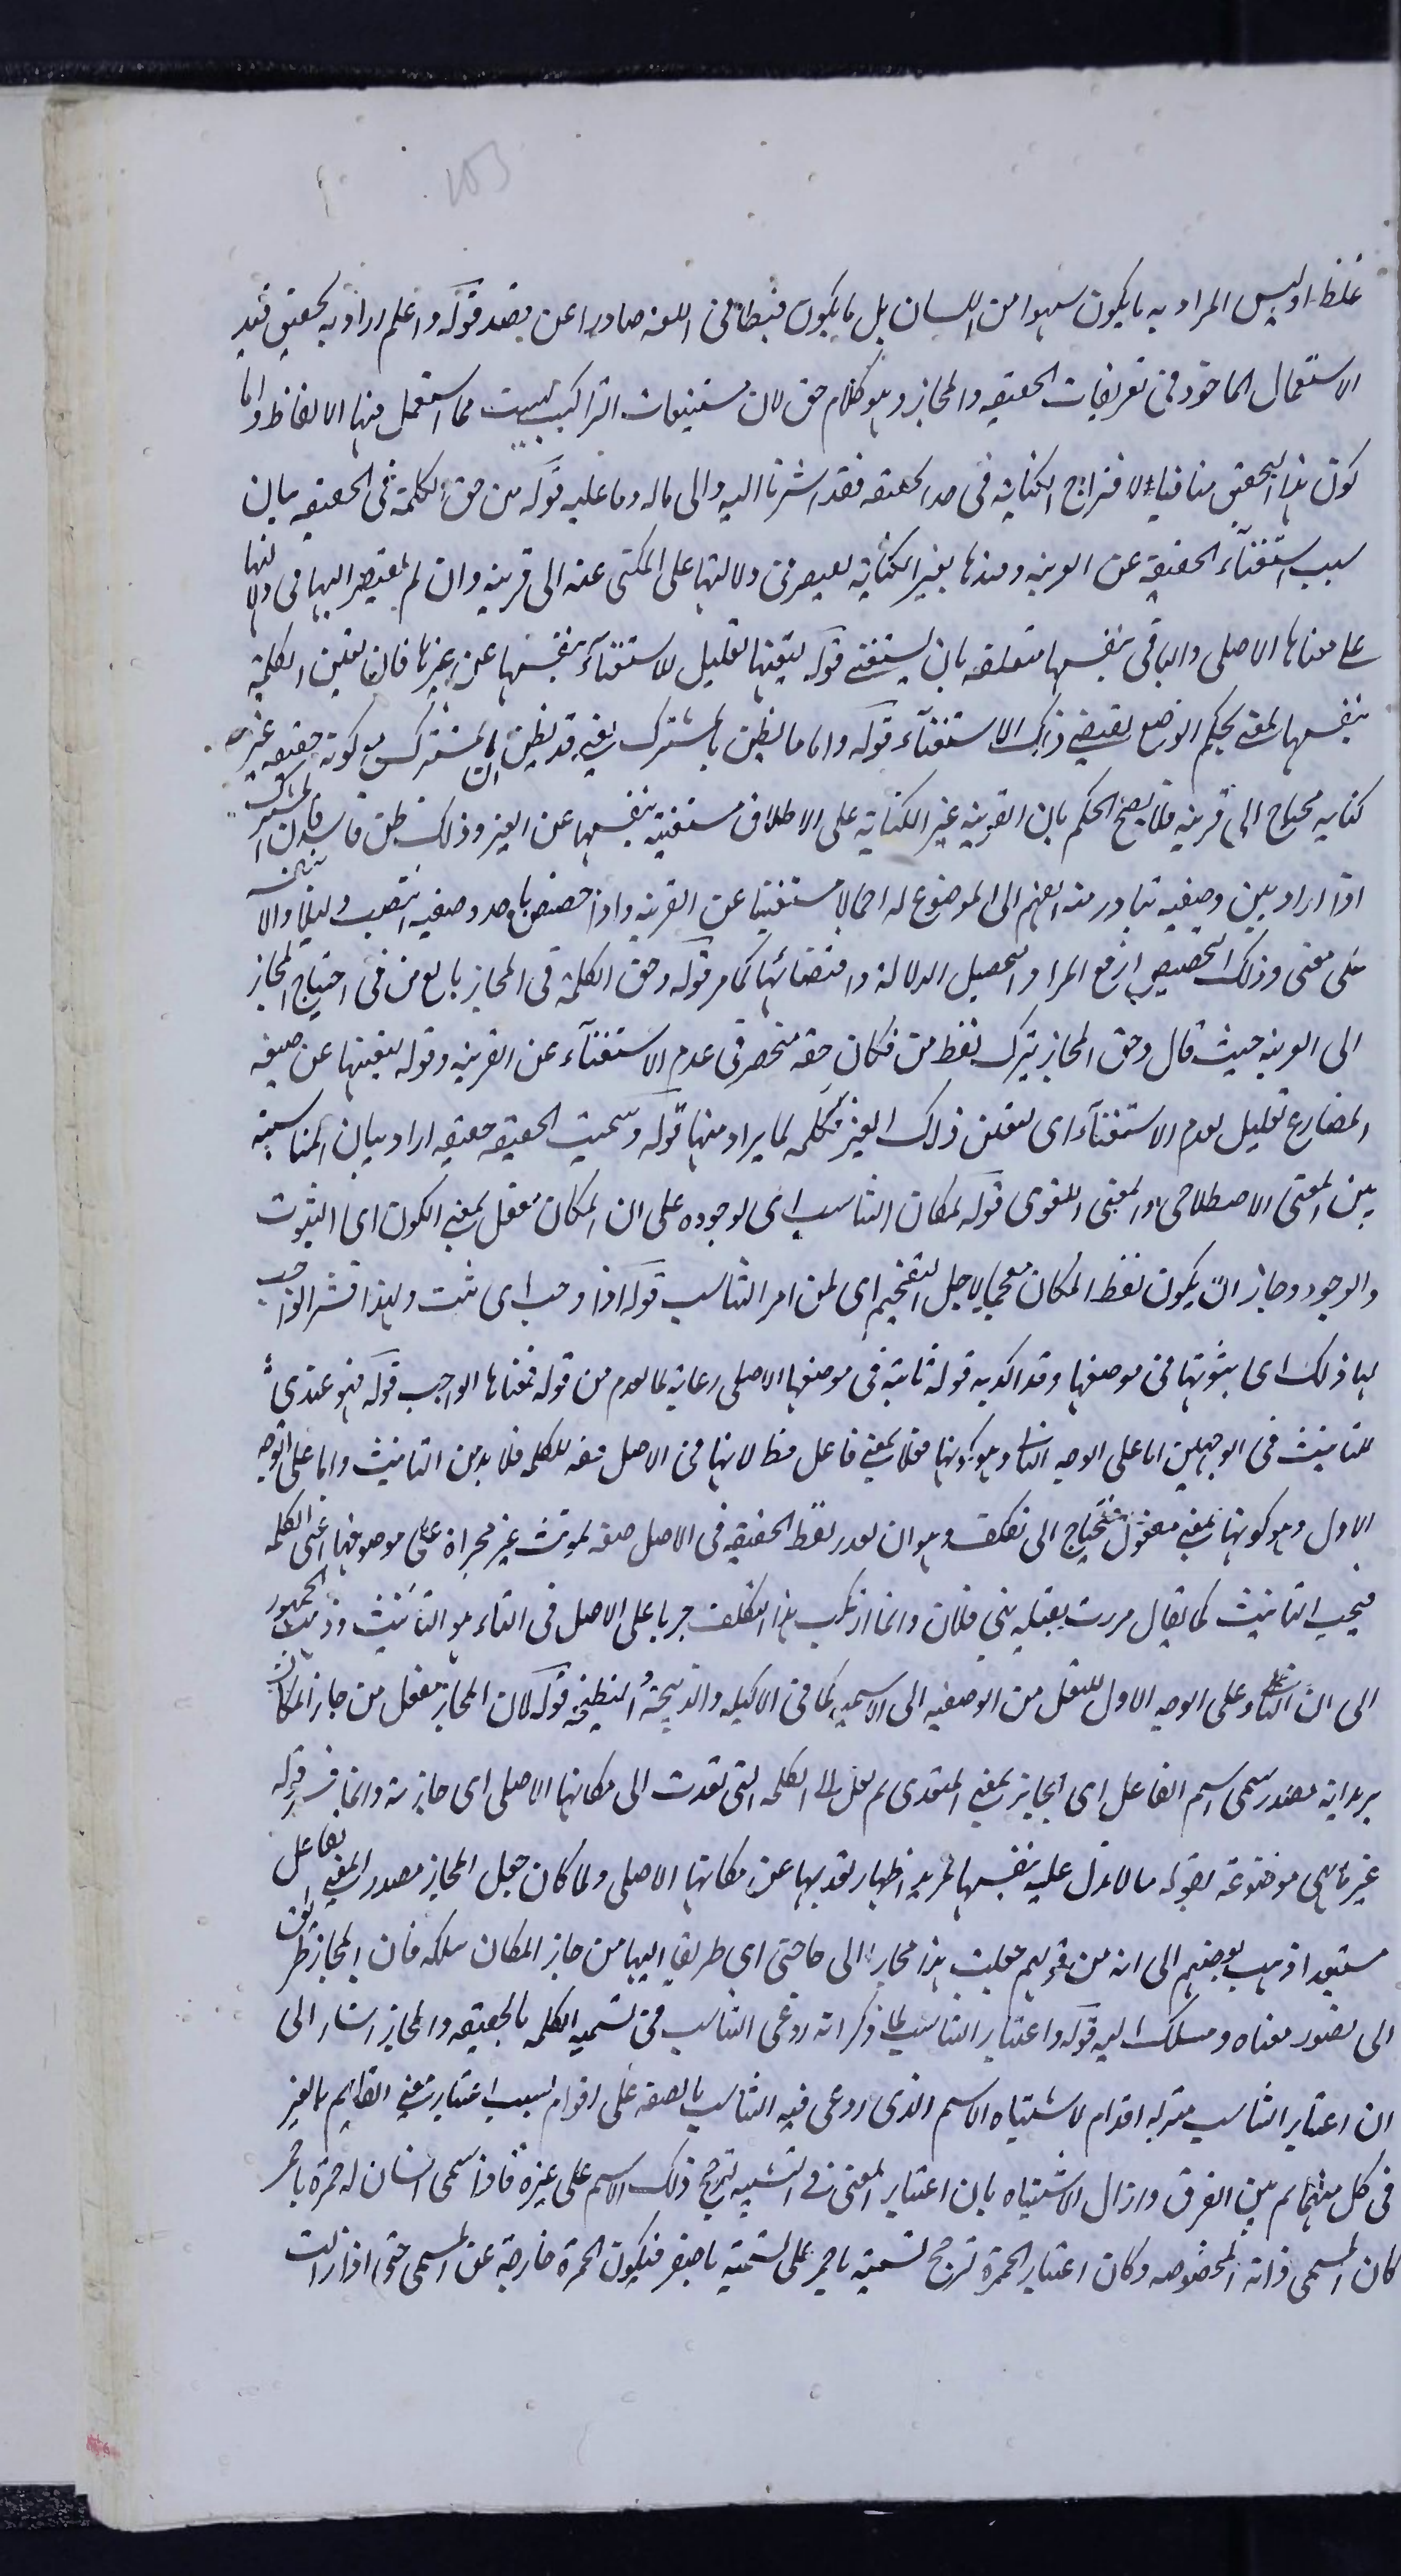 غلطا وليس المراد به ما يكون سهوا من اللسان بل ما يكون خطأ فى اللغة صادرا عن قصد قوله واعلم اراد به تحقيق قيد
الاستعمال الماخوذ فى تعريفات الحقيقه والمجاز وهو كلام حق لان مستتبعات التراكيب ليست مما استعمل فيها الالفاظ واما
كون هذا التحقيق منافيا لاخراج الكناية فى حد الحقيقه فقد اشرنا اليه والى ماله وما عليه قوله من حق الكلمة فى الحقيقه بيان
سبب استغناء الحقيقة عن القرينه وقيدها بغير الكناية لتعيرفى دلالتها على المكنى عنه الى قرينه وان لم تفتقر اليها فى دلالتها
على معناها الاصلى والباقى بنفسها متعلقه بان يستغنى قوله لتعينها تعليل للاستغناء بنفسها عن غيرها فان تعين الكلمة
بنفسها لمعنى بحكم الوضع يقتضى ذلك الاستغناء قوله واما ما يظن بالمشترك يعنى قد يظن ان المشترك مع كونه حقيقه غير
كنايه محتاج الى قرينه فلا يصح الحكم بان القرينه غير الكناية على الاطلاق مستغنية بنفسها عن الغير وذلك ظن فاسد لان المشترك
اذا اراد بين وضعيه تبادر منه الفهم الى الموضوع له اجمالا مستغنيا عن القرينه واذا خصص باحد وضعيه انتصب دليلا دالا بنفسه
على معنى وذلك التخصيص لرفع المراد لتحصيل الدلالة واقتضائها كما مر قوله وحق الكلمة فى المجاز بالغ من فى احتياج المجاز
الى القرينه حيث قال وحق المجاز بترك لفظ من فكان حقه منحصر فى عدم الاستغناء عن القرينه وقوله لتعينها عن صيغه
المضارع تعليل لعدم الاستغناء اى لتعلق ذلك الغير بكلمه لما يراد منها قوله وسميت الحقيقه حقيقه اراد بيان المناسبة
بين المعنى الاصطلاحى والمعنى اللغوى قوله لمكان التناسب اى لوجوده على ان المكان مفعل بمعنى الكون اى الثبوت
والوجود وجاز ان يكون لفظ المكان مقحما لاجل التفخيم اى لمن امر التناسب قوله اذا وجب اى ثبت ولهذا فسر الواجب
لها ذلك اى بثبوتها فى موضعها وقد اكد به قوله ثابتة فى موضعها الاصلى رعاية لما لعدم من قوله فمعناها الواجب قوله فهو عندى
للتانيث فى الوجهين اما على الوجه الثانى وهو كونها فعلا بمعنى فاعل فظ لانها فى الاصل صفه للكلمه فلا بد من التانيث واما على الوجه
الاول وهو كونها بمعنى مفعول فيحتاج الى تكلف وهو ان يقدر لفظ الحقيقه فى الاصل صفه لمونث غير مجراة على موصوفها اعنى الكلمه
فيجب التانيث كما يقال مررت بقتيله بنى فلان وانما ارتكب هذا التكلف جريا على الاصل فى التاء هو التانيث وذهب الجمهور
الى ان التاء على الوجه الاول للنقل من الوصفيه الى الاسميه كما فى الاكيله والذبيحة و النطيحه قوله لان المجاز مفعل من جاز المكان
يريد انه مصدر سمى اسم الفاعل اى الجايز بمعنى المتعدى ثم نقل الى الكلمه التى تعدت الى مكانها الاصلى اى جازته وانما فسر قوله
غير ما هى موضوعة بقوله ما لا تدل عليه بنفسها لمزيد اظهار تعديها عن مكانها الاصلى ولما كان جعل المجاز مصدرا بمعنى الفاعل
مستبعدا ذهب بعضهم الى انه من قولهم جعلت هذا مجازا الى حاجتى اى طريقا اليها من جاز المكان سلكه فان المجاز طريق
الى تصور معناه ومسلك اليه قوله واعتبار التناسب لما ذكر انه روعى التناسب فى تسمية الكلمه بالحقيقه والمجاز اشار الى
ان اعتبار التناسب مزله اقدام لاشتباه الاسم الذى روعى فيه التناسب بالصفه على اقوام لسبب اعتبار معنى القايم بالغير
فى كل منهما ثم بين الفرق وازال الاشتباه بان اعتبار المعنى فى التسميه لترجيح ذلك الاسم على غيره فاذا سمى انسان له حمرة باحمر
كان المسمى ذاته المخصوصه وكان اعتبار الحمرة ترجيح لتسميته باحمر على تسميته باصفر فيكون الحمرة خارجة عن المسمى حتى اذا زالت